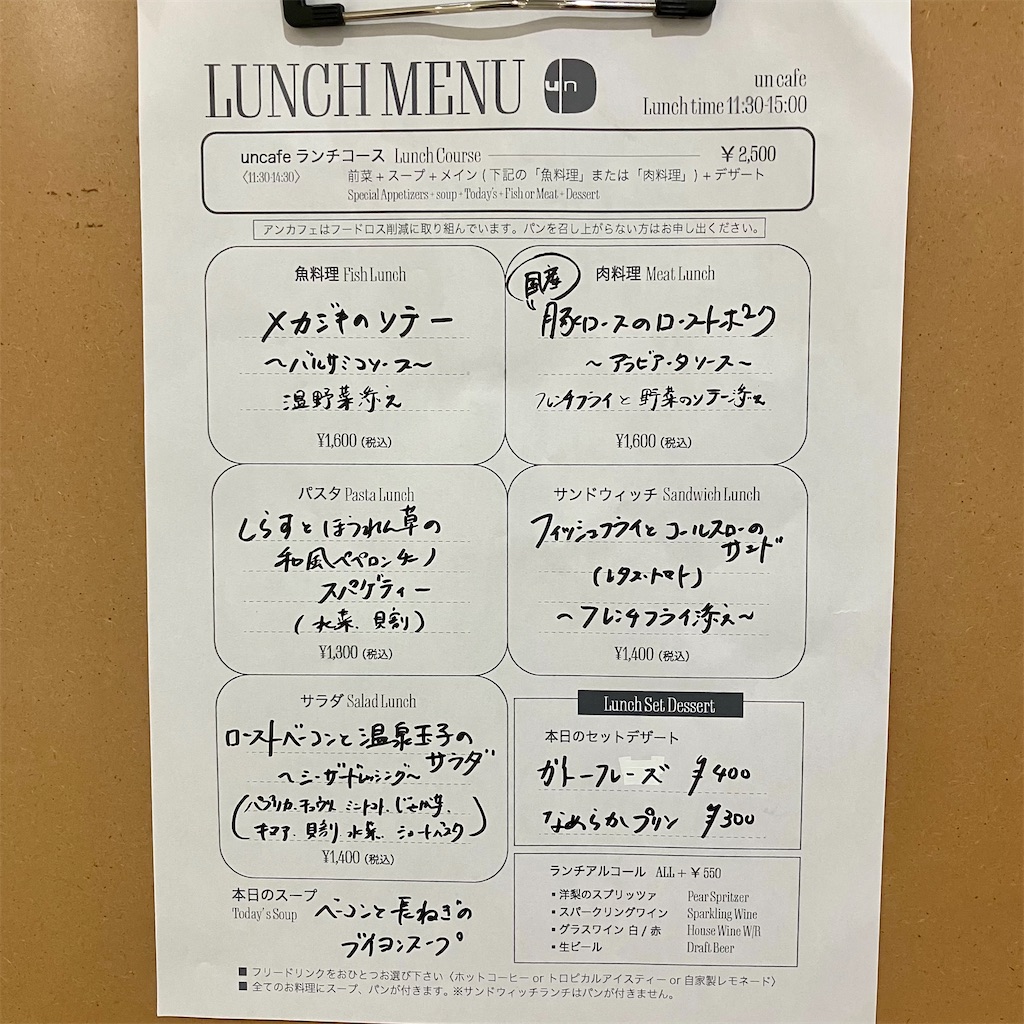 LUNCH MENU un
un cafe
Lunch time 11:30-15:00
uncafe ランチコース Lunch Course ¥2,500
〈11:30-14:30〉 前菜+スープ+メイン(下記の「魚料理」または「肉料理」)+デザート
Special Appetizers + soup + Today's + Fish or Meat + Dessert
アンカフェはフードロス削減に取り組んでいます。パンを召し上がらない方はお申し出ください。
魚料理 Fish Lunch
メカジキのソテー
〜バルサミコソース〜
温野菜添え
¥1,600(税込)
国産
肉料理 Meat Lunch
豚ロースのローストポーク
〜アラビアータソース〜
フレンチフライと野菜のソテー添え
¥1,600(税込)
パスタ Pasta Lunch
しらすとほうれん草の
和風ペペロンチーノ
スパゲティー
(水菜、貝割)
¥1,300(税込)
サンドウィッチ Sandwich Lunch
フィッシュフライとコールスローの
サンド
(レタス・トマト)
〜フレンチフライ添え〜
¥1,400(税込)
サラダ Salad Lunch
ローストベーコンと温泉玉子の
サラダ
〜シーザードレッシング〜
(パプリカ、チコリ、ミニトマト、じゃが芋、
キヌア、貝割、水菜、ショートパスタ)
¥1,400(税込)
Lunch Set Dessert
本日のセットデザート
ガトーフレーズ ¥400
なめらかプリン ¥300
ランチアルコール ALL+¥550
▪洋梨のスプリッツァ Pear Spritzer
▪スパークリングワイン Sparkling Wine
▪グラスワイン 白/赤 House Wine W/R
▪生ビール Draft Beer
本日のスープ
Today's Soup ベーコンと長ねぎの
ブイヨンスープ
■ フリードリンクをおひとつお選び下さい〈ホットコーヒー or トロピカルアイスティー or 自家製レモネード〉
■ 全てのお料理にスープ、パンが付きます。※サンドウィッチランチはパンが付きません。